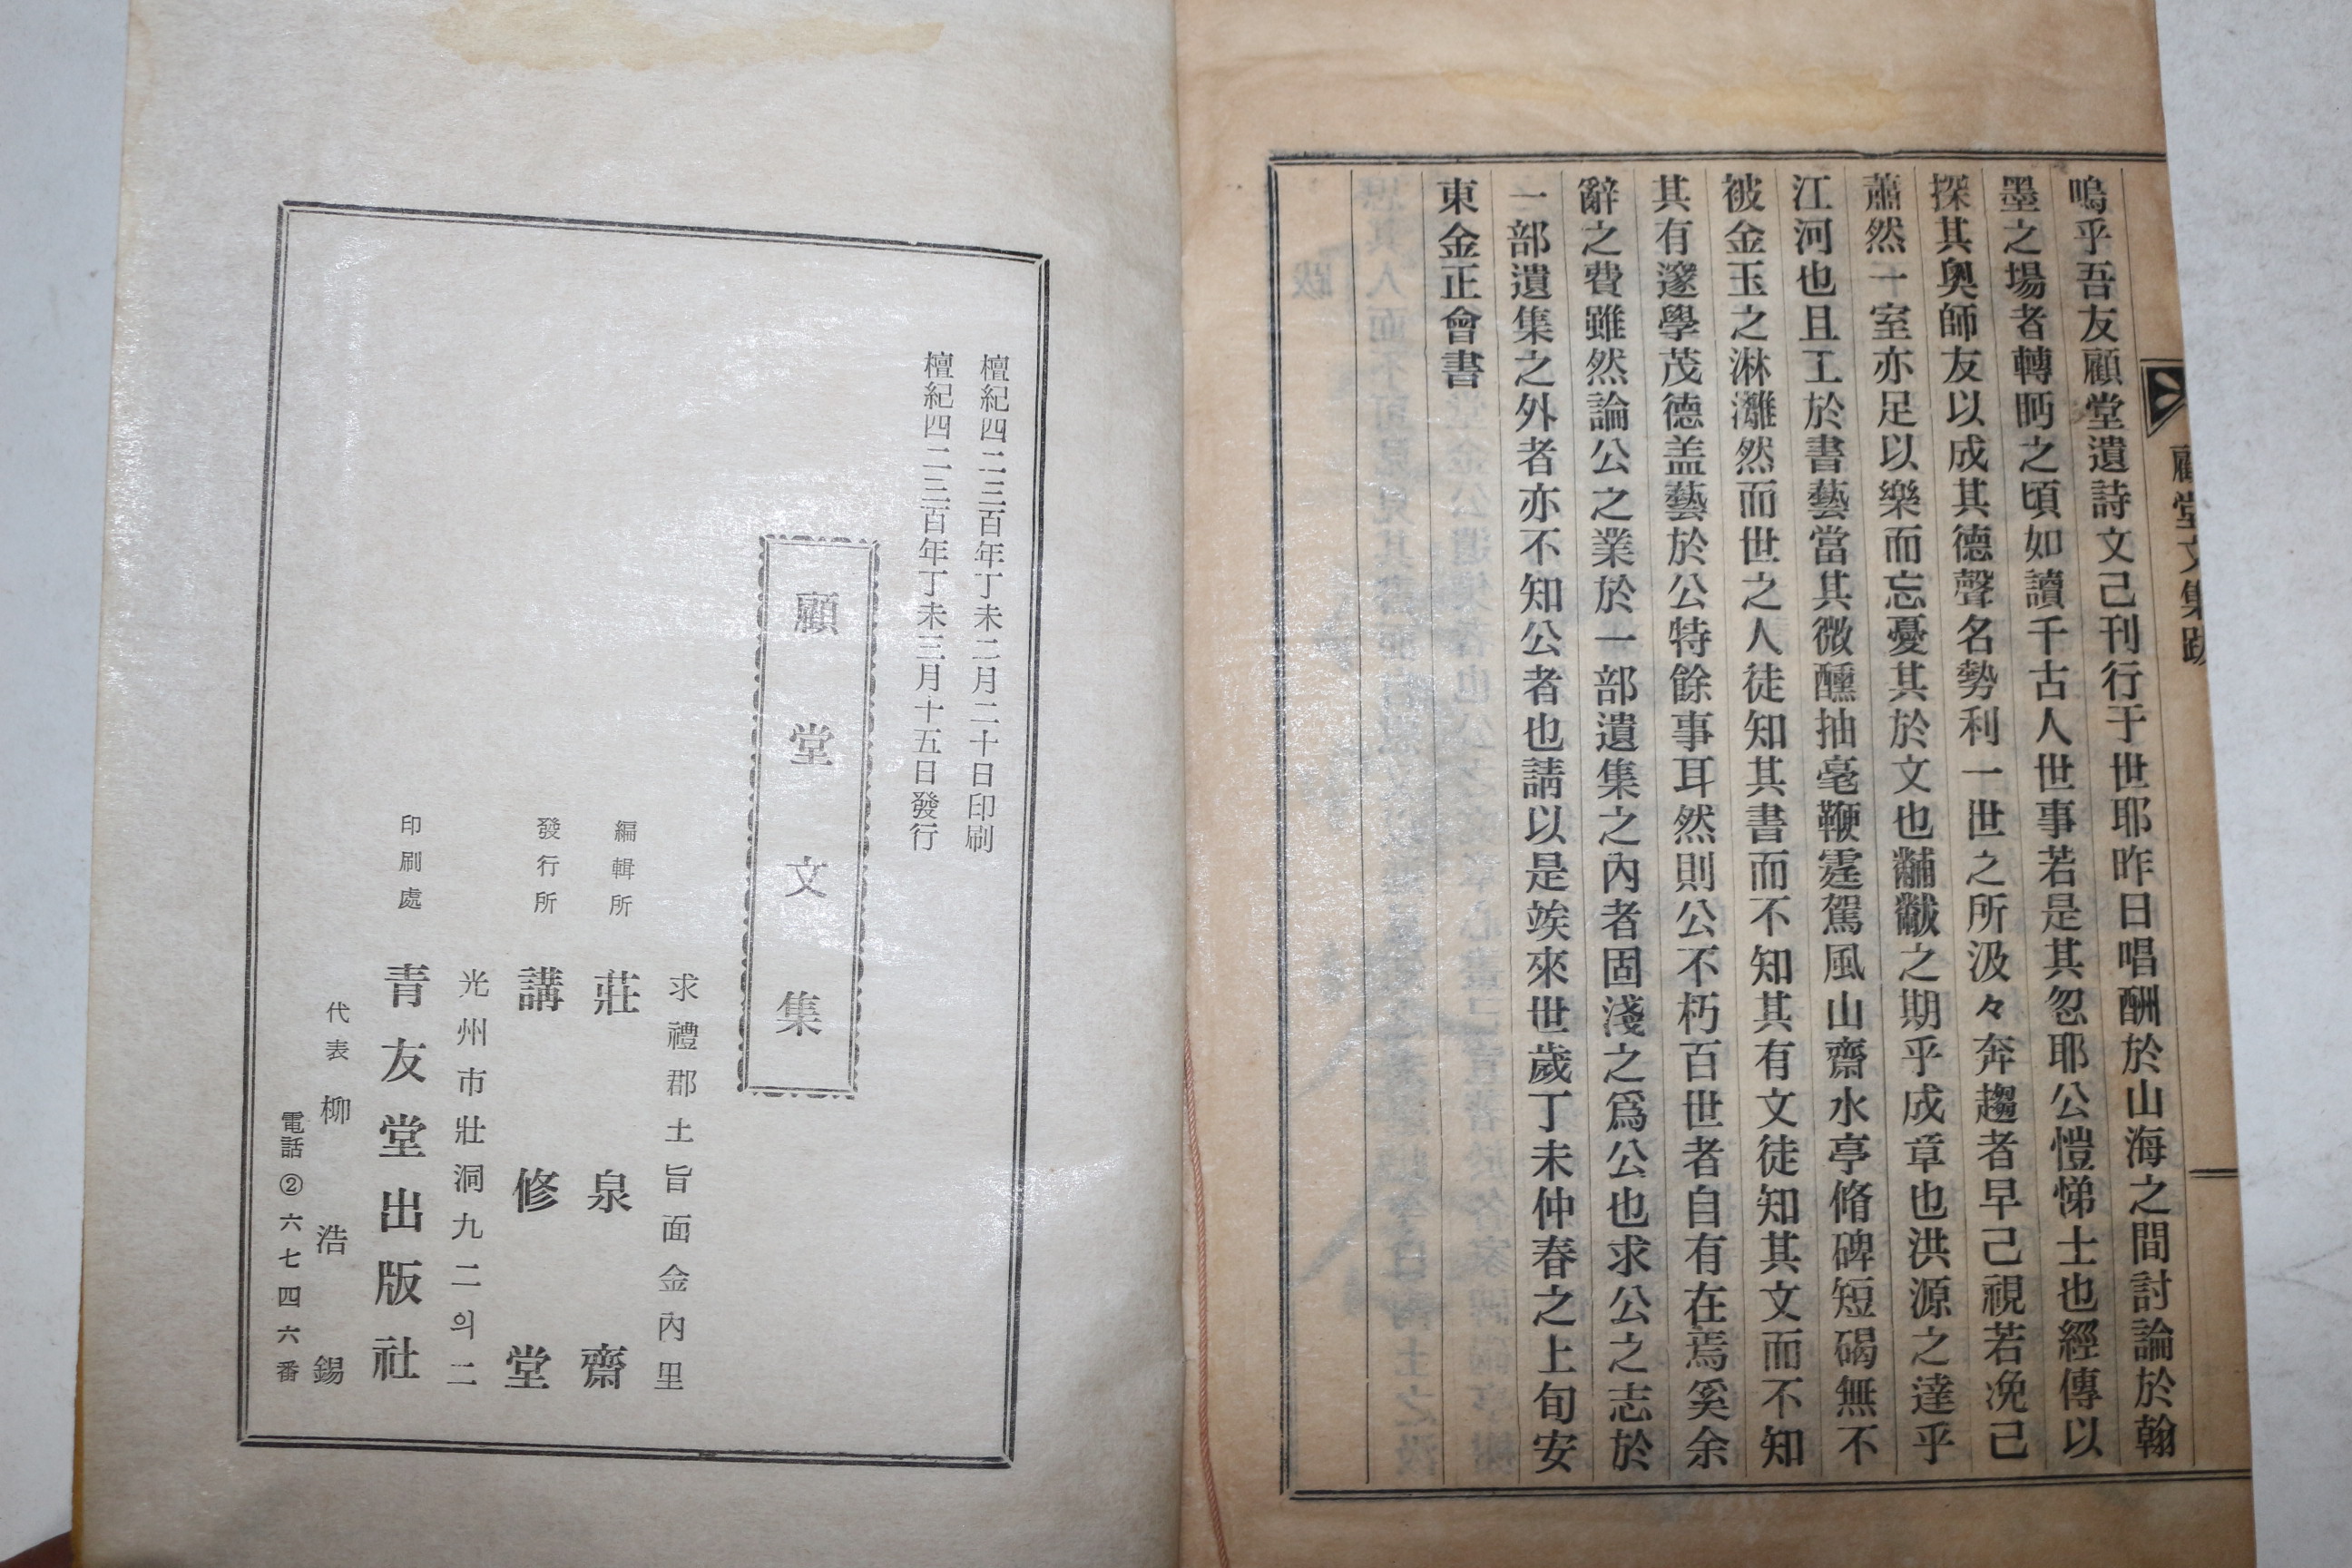 顧堂文集跋
嗚乎吾友顧堂遺詩文己刊行于世耶昨日唱酬於山海之間討論於翰
墨之場者轉眄之頃如讀千古人世事若是其忽耶公愷悌士也經傳以
探其奧師友以成其德聲名勢利一世之所汲々奔趨者早己視若浼己
蕭然一室亦足以樂而忘憂其於文也黼黻之期乎成章也洪源之達乎
江河也且工於書藝當其微醺抽毫鞭霆駕風山齋水亭脩碑短碣無不
被金玉之淋灕然而世之人徒知其書而不知其有文徒知其文而不知
其有邃學茂德盖藝於公特餘事耳然則公不朽百世者自有在焉奚余
辭之費雖然論公之業於一部遺集之內者固淺之爲公也求公之志於
一部遺集之外者亦不知公者也請以是竢來世歲丁未仲春之上旬安
東金正會書
檀紀四二三百年丁未二月二十日印刷
檀紀四二三百年丁未三月十五日發行
顧堂文集
求禮郡土旨面金內里
編輯所 莊泉齋
發行所 講修堂
光州市壯洞九二의二
印刷處 青友堂出版社
代表 柳浩錫
電話②六七四六番